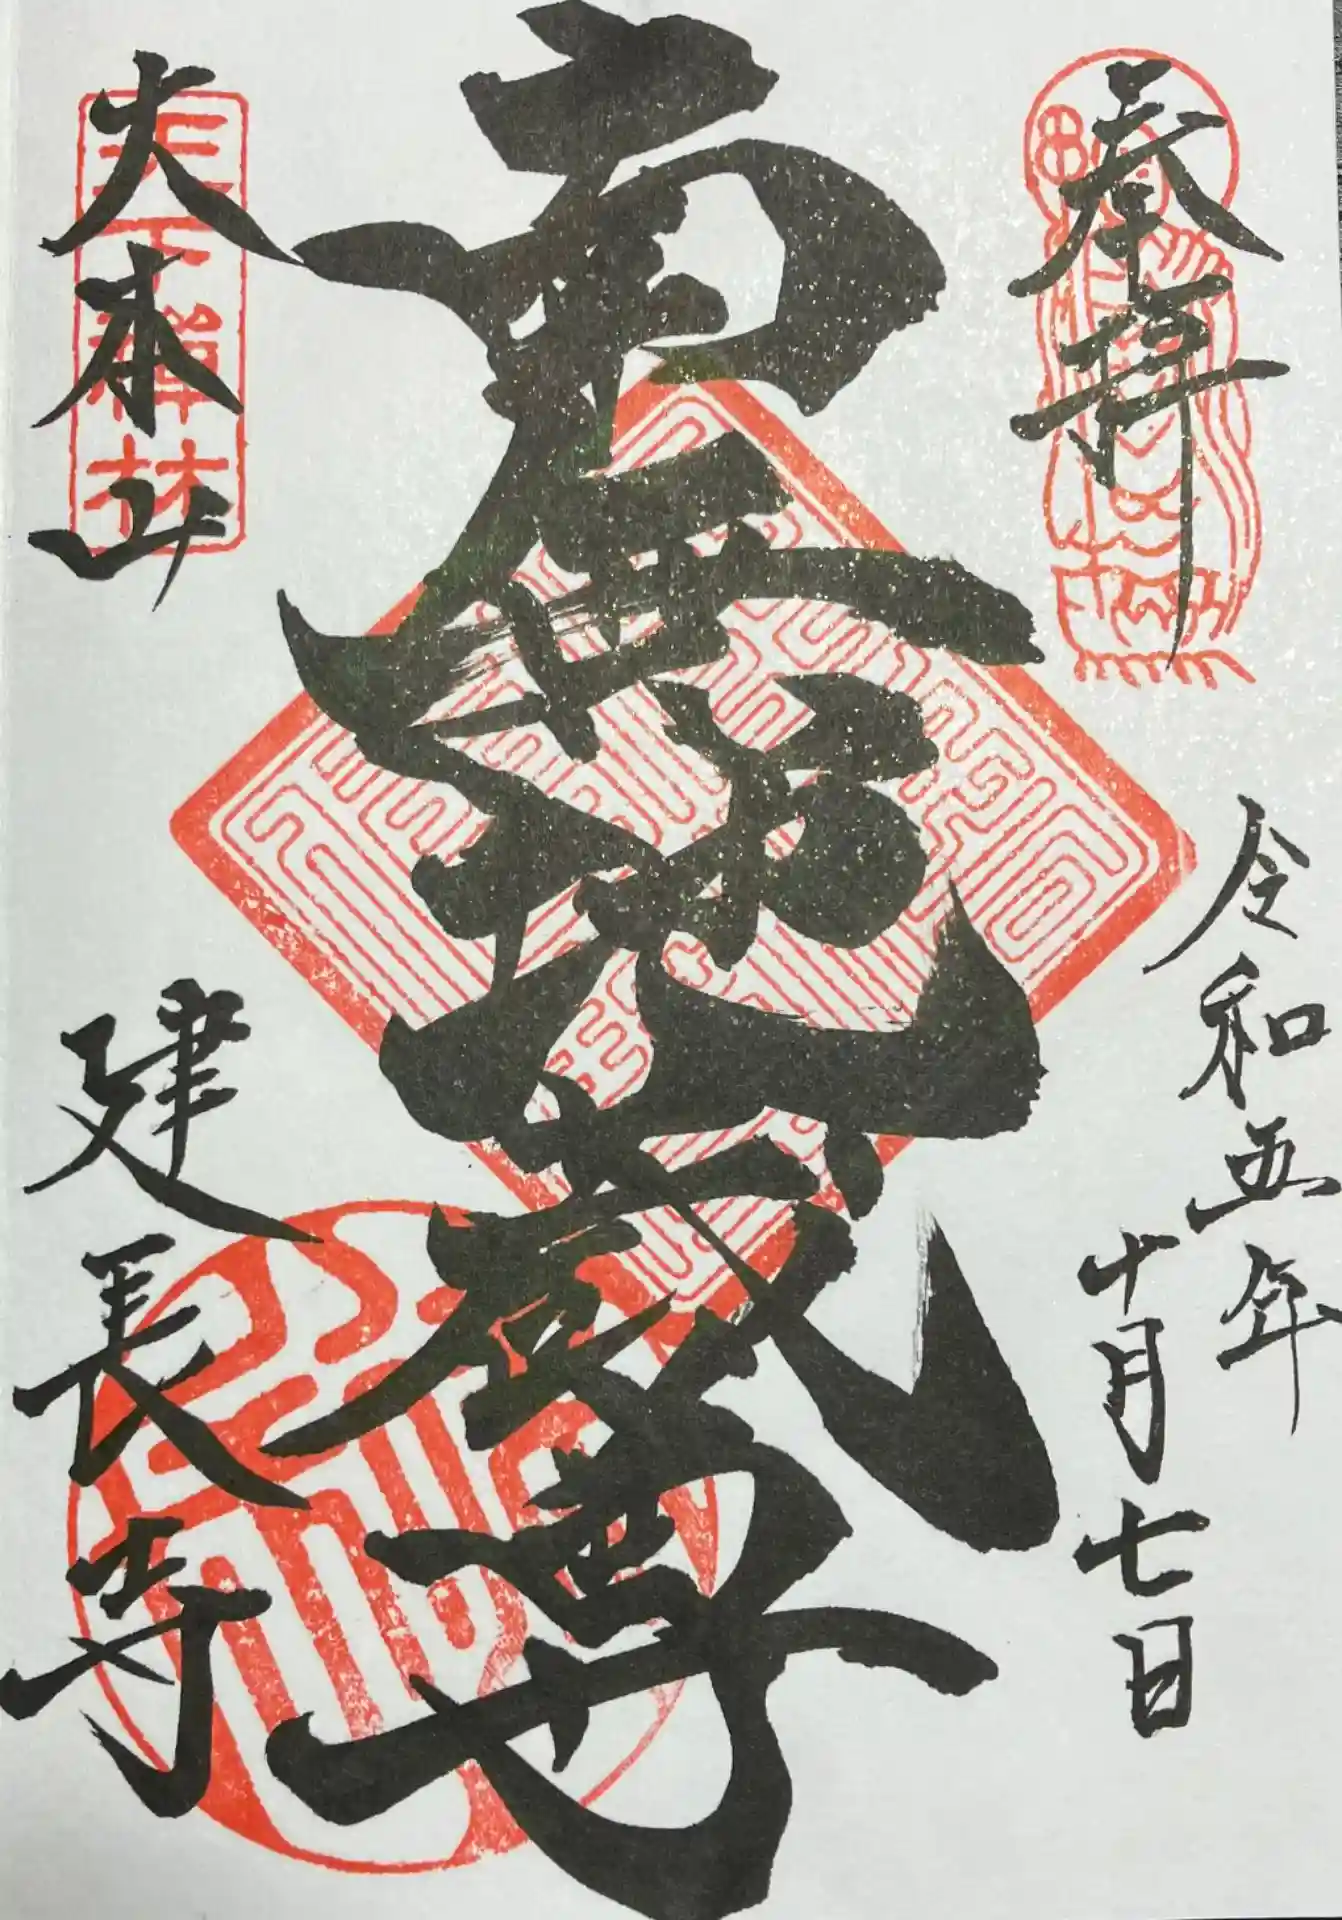 奉拝
令和五年
十月七日
南無地蔵尊
大本山
建長寺
天下禅林